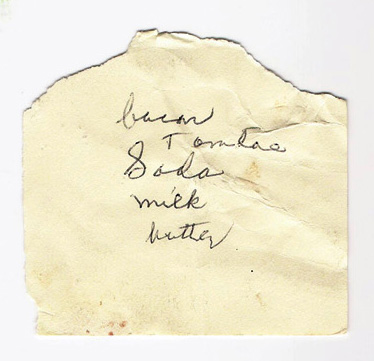 bacon
Tomtoe
Soda
milk
butter